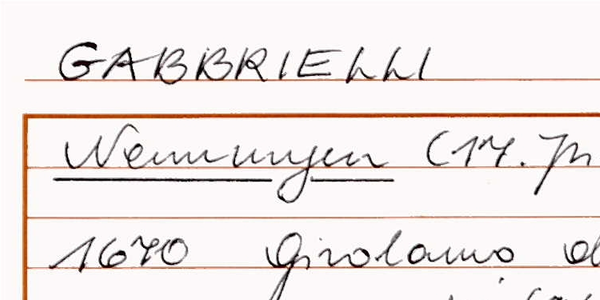 GABBRIELLI
Nennungen (17. Jh
1670 Girolamo d